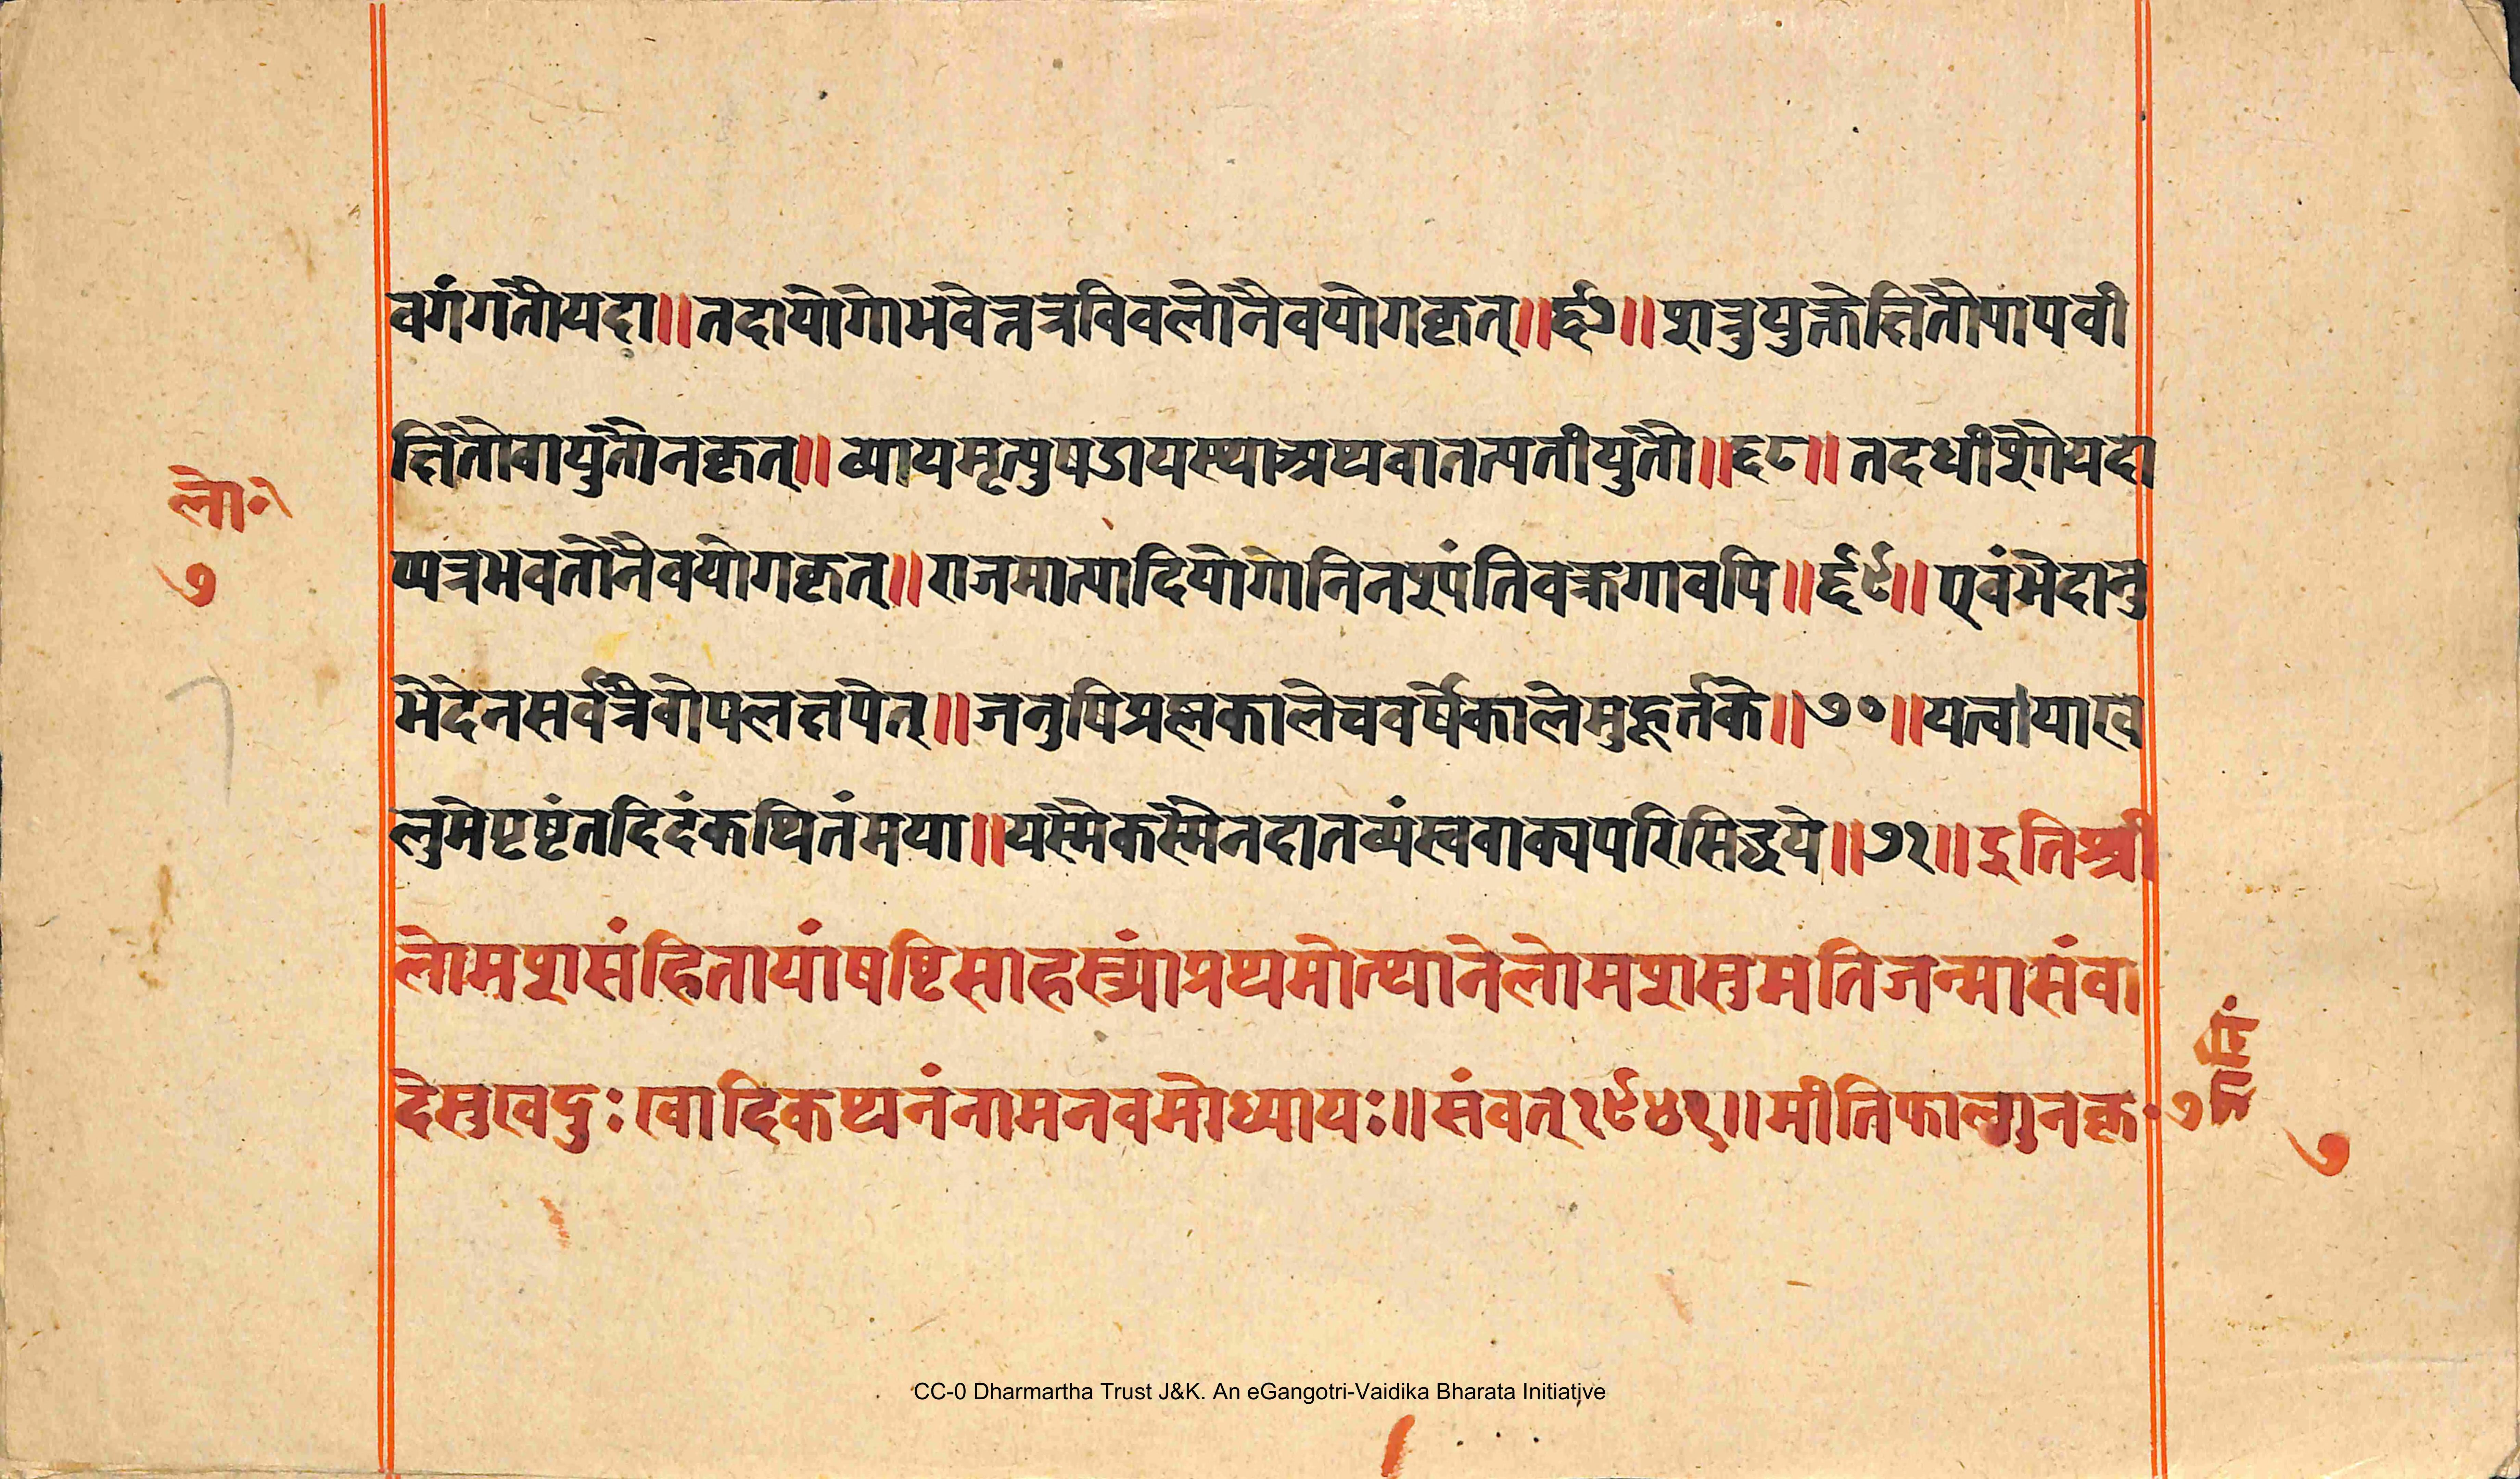 वर्गंगतौयदा॥तदायोगोभवेन्नत्रविवलोनैवयोगकृत्॥६७॥शत्रुयुक्तेक्षितौपापवी
क्षितौवायुतौनकृत्॥व्यायमृत्युषडायस्थाश्रष्यवातत्पतीयुतौ॥६८॥तदधीशौयदा
प्यत्रभवतोनैवयोगकृत्॥राजमात्यादियोगोनिनश्पंतिवक्रगावपि॥६९॥एवंभेदानु
भेदेनसर्वत्रैवोपलक्षयेत्॥जनुषिप्रस्नकालेचवर्षेकालेमुहूर्तके॥७०॥यत्वायाख
लुमेपृष्टंतदिदंकथितंमया॥यस्मैकस्मैनदातव्यंस्ववाक्यपरिसिद्धये॥७१॥इतिश्री
लोमशसंहितायांषष्टिसाहस्त्र्यांप्रथमोत्थानेलोमशसुमतिजन्मासंवा
देसुखदुःखादिकथनंनामनवमोध्यायः॥संवत्१९४१॥मीतिफाल्गुनकृ॰७
लो॰
७
७
CC-0 Dharmartha Trust J&K. An eGangotri-Vaidika Bharata Initiative